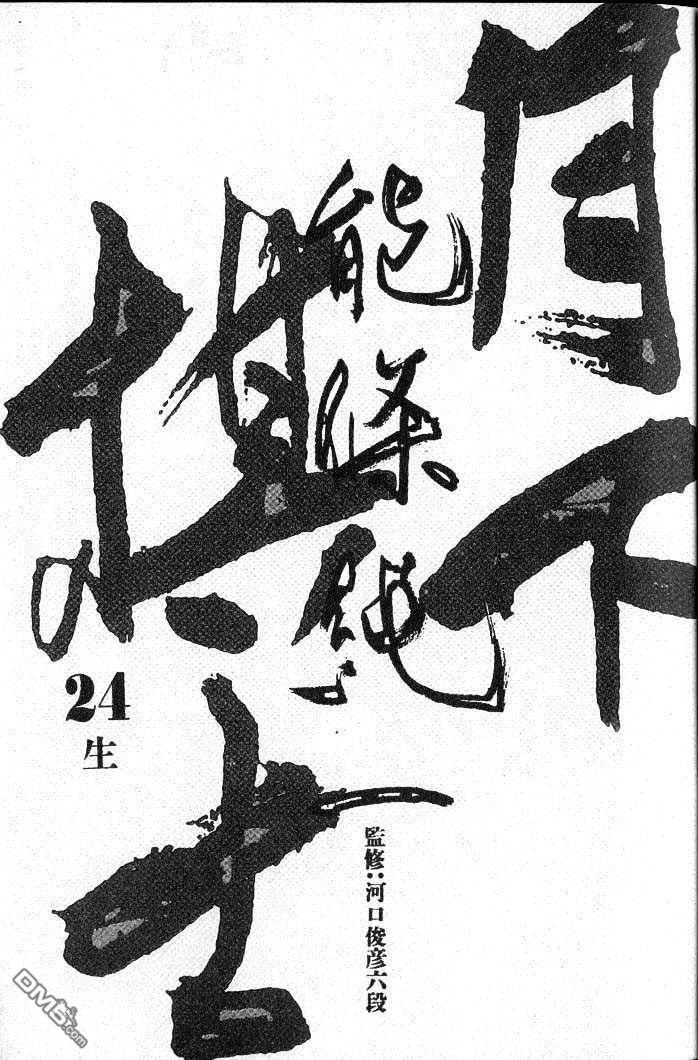 月下
の棋士
能條純一
24
生
監修:河口俊彦六段
DM5.com